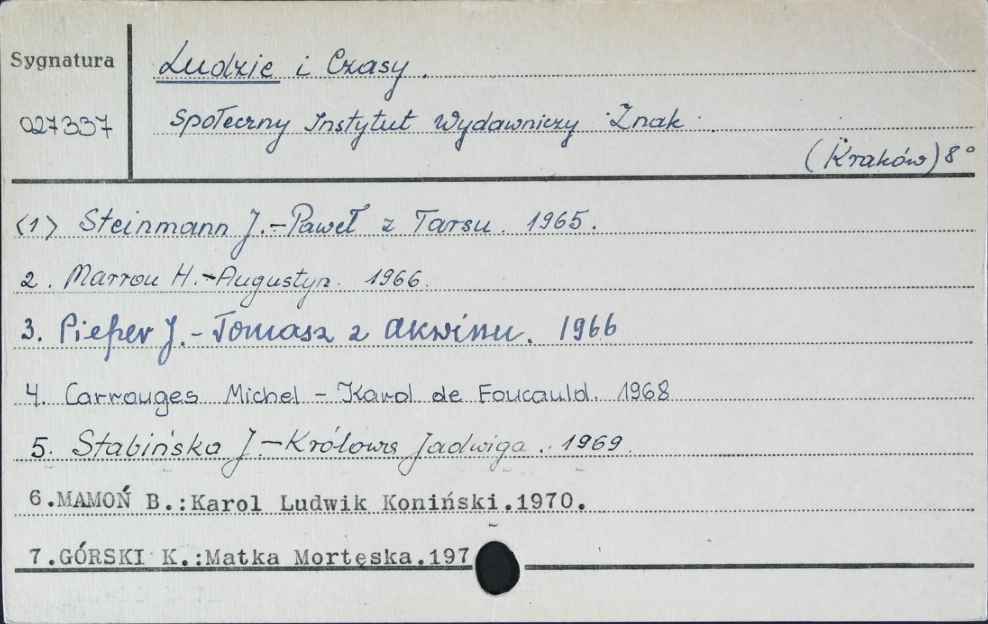 Sygnatura
Ludzie i Czasy.
027337
Społeczny Instytut Wydawniczy Znak.
(Kraków) 8°
(1) Steinmann J.-Paweł z Tarsu. 1965.
2. Marrou H.-Augustyn. 1966.
3. Pieper J.-Tomasz z Akwinu. 1966
4. Carrouges Michel - Karol de Foucauld. 1968
5. Stabińska J.-Królowa Jadwiga. 1969.
6.MAMOŃ B.:Karol Ludwik Koniński.1970.
7.GÓRSKI K.:Matka Mortęska.197